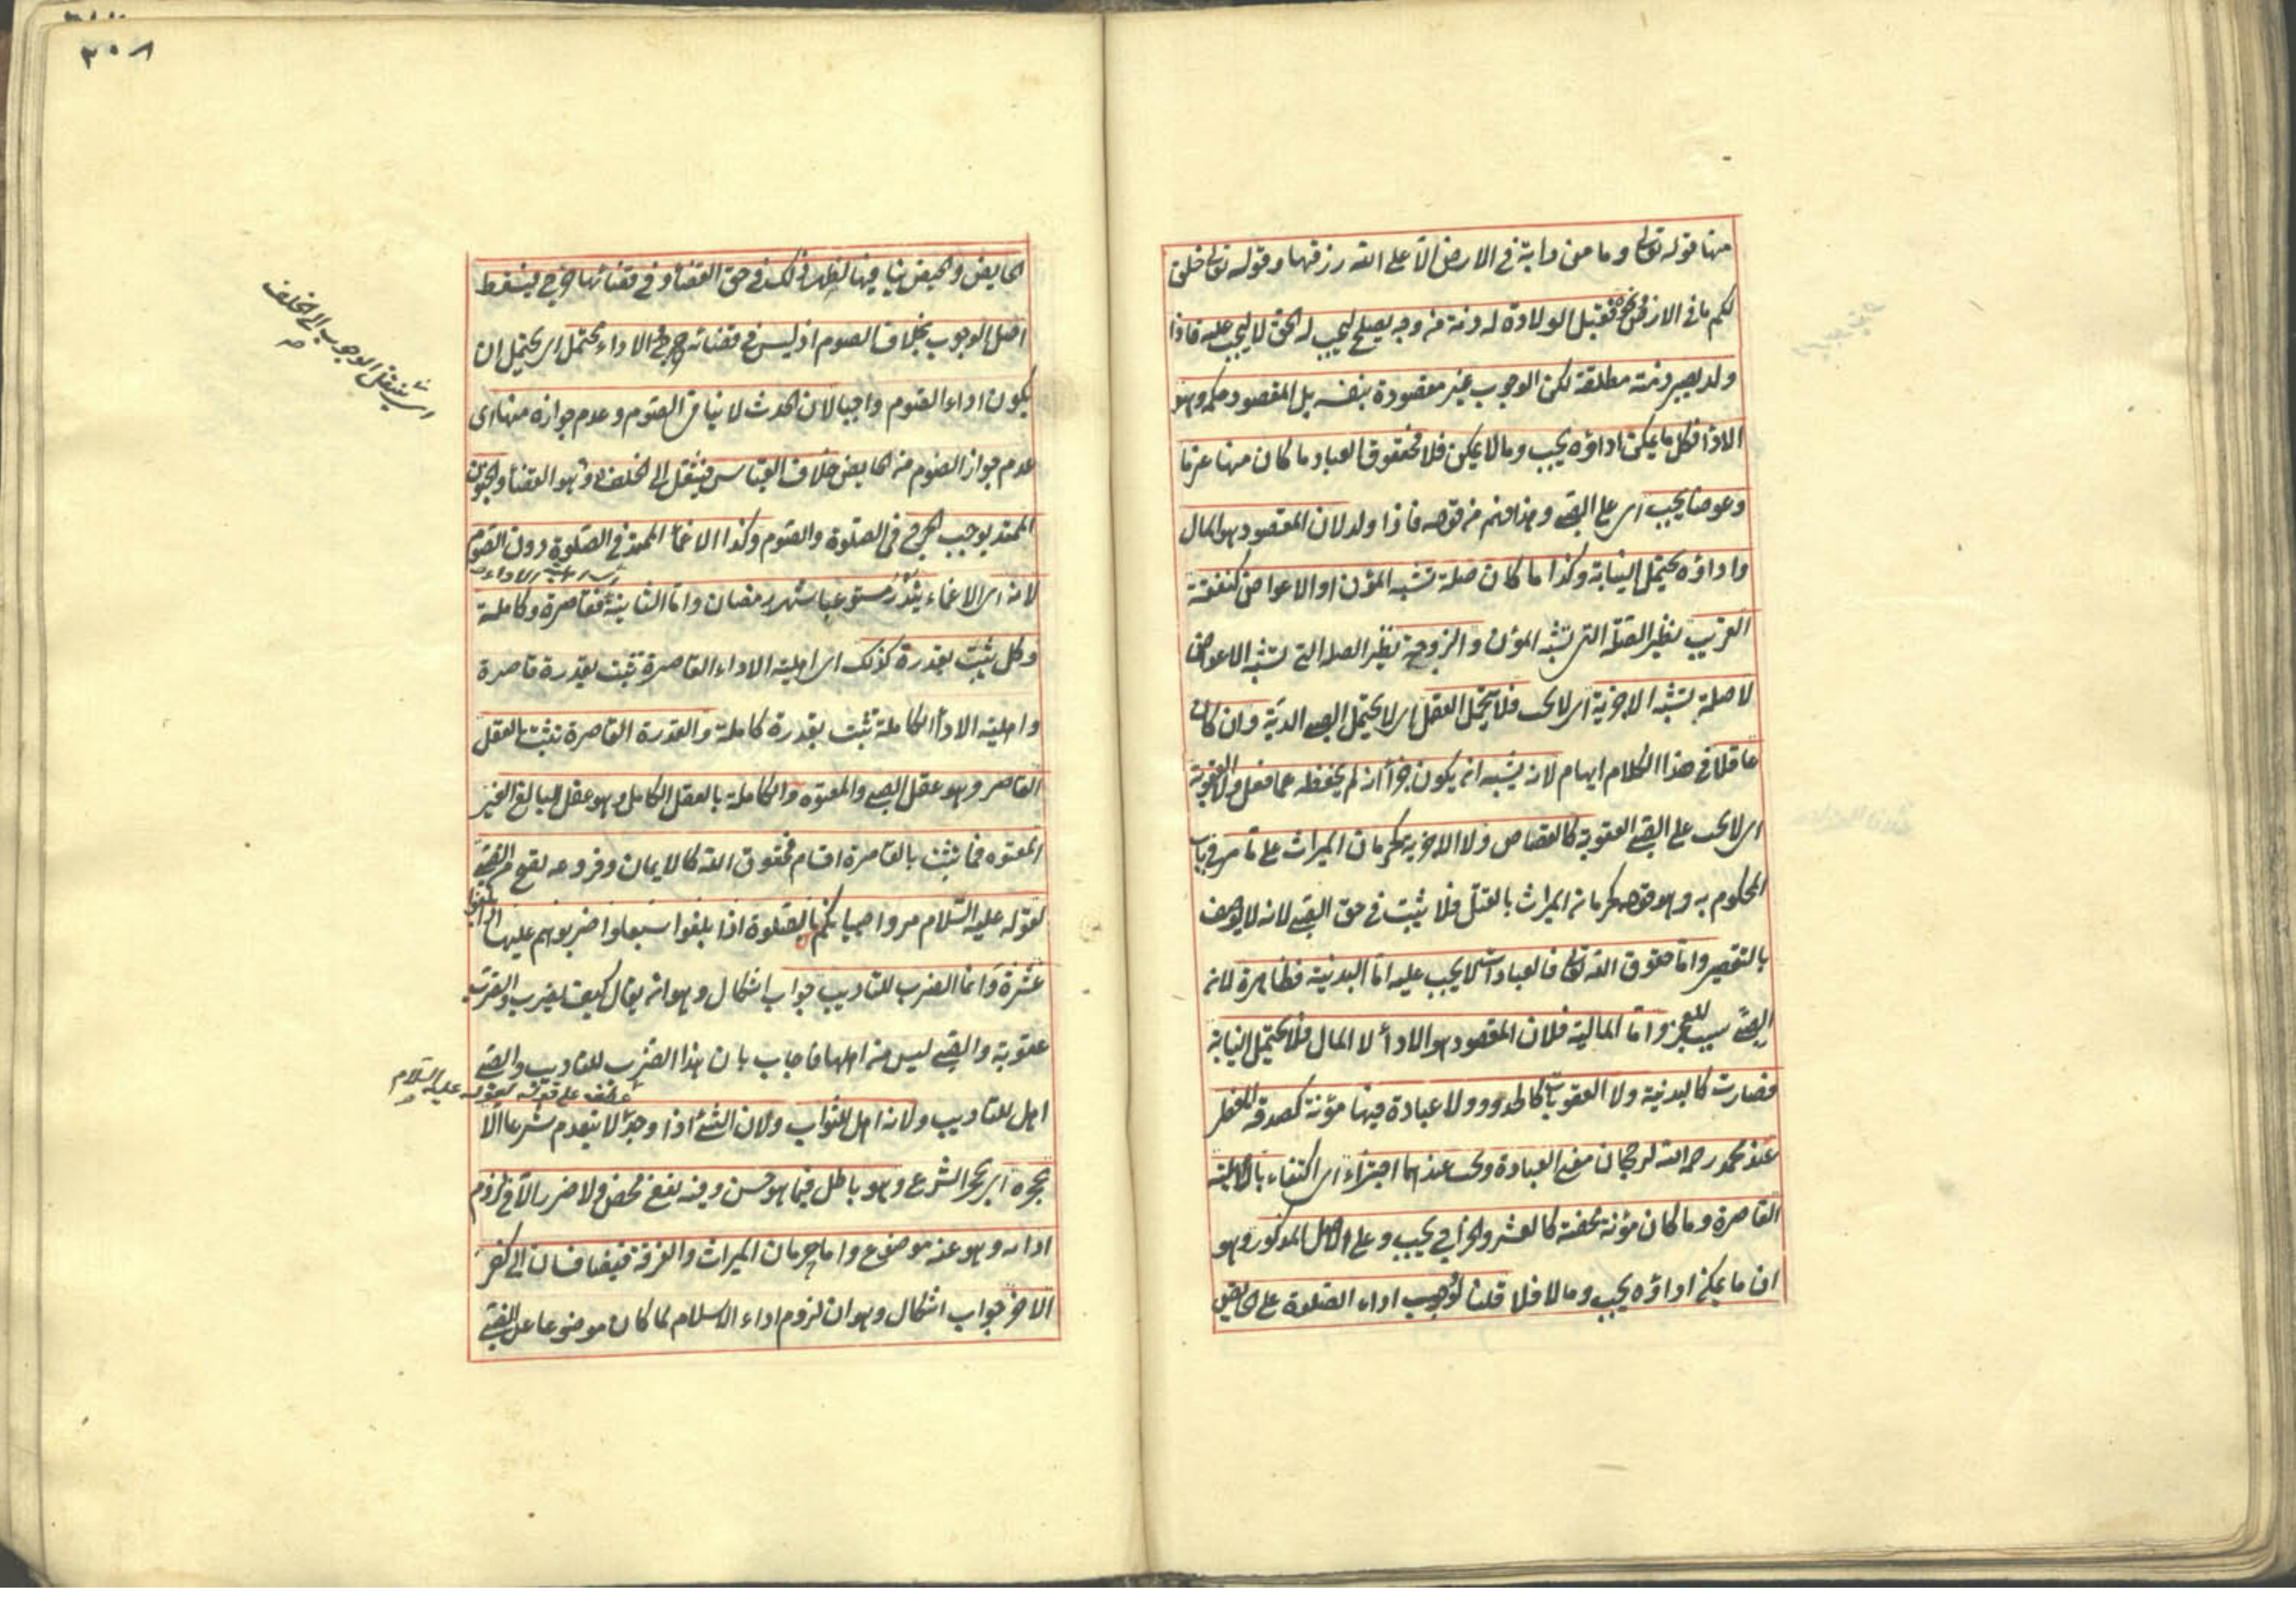 منها قوله تعالى وما من دابة في الارض الا على الله رزقها وقوله تعالى خلق
لكم ما في الارض فقبل الولادة له ذمة من وجه يصلح ليجب له الحق لا ليجب عليه فاذا
ولد يصير ذمته مطلقة لكن الوجوب غير مقصودة بنفسه بل المقصود حكمه وهو
الاداء فكل ما يمكن اداؤه يجب وما لا يمكن فلا فحقوق العباد ما كان منها غرما
وعوضا يجب اى على الصبى وهذا فهم من قوله فاذا ولد لان المقصود هو المال
واداؤه يحتمل النيابة وكذا ما كان صلة تشبه المؤن او الاعواض كنفقة
القريب نظير الصلة التى تشبه المؤن والزوجة نظير الصلة التى تشبه الاعواض
لا صلة تشبه الاجزية اى لا يجب فلا يتحمل العقل اى لا يحتمل الصبى الدية وان كان
عاقلا في هذا الكلام ايهام لانه يشبه انه يكون جزاء انه لم يحفظه عما فعل ولا العقوبة
اى لا يجب على الصبى العقوبة كالقصاص ولا الاجزية كحرمان الميراث على ما مر في باب
المحكوم به وهو قوله كحرمانه الميراث بالقتل فلا يثبت في حق الصبى لانه لا يوصف
بالتقصير واما حقوق الله تعالى فالعبادات لا يجب عليه اما البدنية فظاهرة لانه
الصبى سبب للعجز واما المالية فلان المقصود هو الاداء لا المال فلا يحتمل النيابة
فصارت كالبدنية ولا العقوبات كالحدود ولا عبادة فيها مؤنة كصدقة الفطر
عند محمد رحمه الله لرجحان معنى العبادة ويجب عندهما اجتزاء اى اكتفاء بالاهلية
القاصرة وما كان مؤنة محضة كالعشر والخراج يجب وعلى الاصل المذكور وهو
ان ما يمكن اداؤه يجب وما لا فلا قلنا لا يجب اداء الصلوة على الحائض
٣٠٨
الحايض والحيض ينافيها لظهر ذلك في حق القضاء وفي قضائها حرج فيسقط
اصل الوجوب بخلاف الصوم اذ ليس في قضائه حرج والاداء محتمل اى يحتمل ان
يكون اداء الصوم واجبا لان الحدث لا ينافى الصوم وعدم جوازه منها اى
عدم جواز الصوم من الحايض خلاف القياس فينتقل الى الخلف وهو القضاء والجنون
اى ينتقل الوجوب الى الخلف
الممتد يوجب الحرج في الصلوة والصوم وكذا الاغماء الممتد في الصلوة دون الصوم
لانه اى الاغماء يندر مستوعبا شهر رمضان واما الثانية فقاصرة وكاملة
وكل يثبت بقدرة كذلك اى اهلية الاداء القاصرة تثبت بقدرة قاصرة
واهلية الاداء الكاملة تثبت بقدرة كاملة والقدرة القاصرة تثبت بالعقل
القاصر وهو عقل الصبى والمعتوه والكاملة بالعقل الكامل وهو عقل البالغ الغير
المعتوه فما يثبت بالقاصرة اقسام فحقوق الله كالايمان وفروعه تصح من الصبى
لقوله عليه السلام مروا صبيانكم بالصلوة اذا بلغوا سبعا واضربوهم عليها اذا بلغوا
عشرة وانما الضرب للتاديب جواب اشكال وهو انه يقال كيف يضرب والضرب
عقوبة والصبى ليس من اهلها فاجاب بان هذا الضرب للتاديب والصبى
عطف على قوله لقوله عليه السلام
اهل للتاديب ولانه اهل للثواب ولان الشئ اذا وجد لا ينعدم شرعا الا
بحجره اى بحجر الشرع وهو باطل فيما هو حسن وفيه نفع محض ولا ضرر الا في لزوم
ادائه وهو عنه موضوع واما حرمان الميراث والفرقة فيضافان الى كفر
الاخر جواب اشكال وهو ان لزوم اداء الاسلام لما كان موضوعا عن الصبى